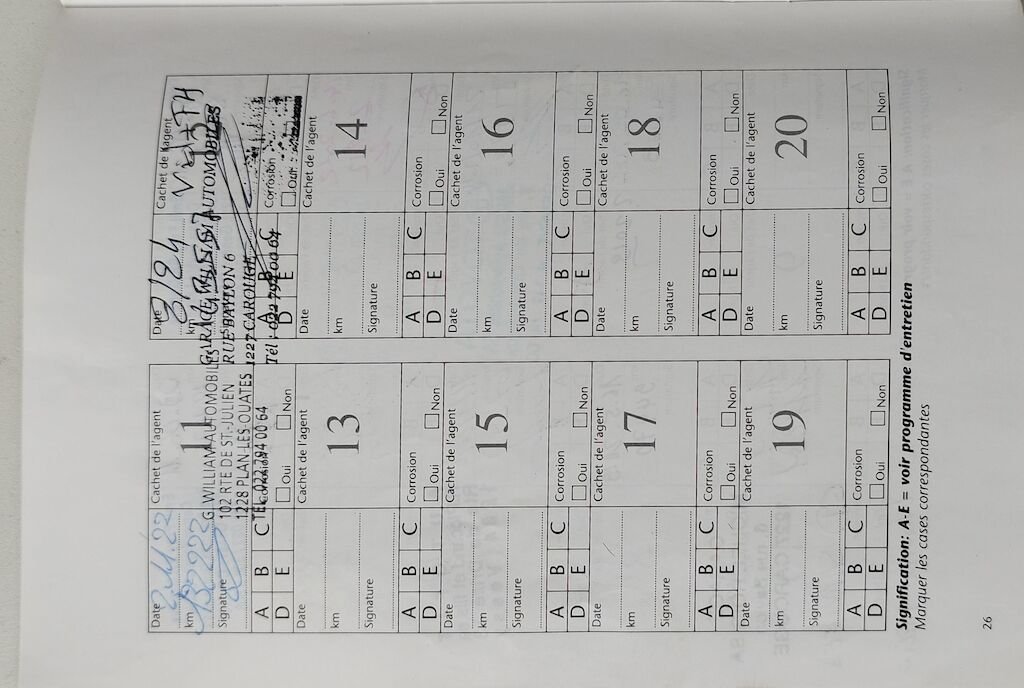 Date
Cachet de l'agent
km
11
Signature
G.WILLIAM AUTOMOBILES
102 RTE DE ST-JULIEN
1228 PLAN-LES-OUATES
TEL 022 794 00 64
A B C
D E
Corrosion
Oui
Non
Date 3/24
Cachet de l'agent
km
GARAGE WILLIAM AUTOMOBILES
RUE BAYLON 6
1227 CAROUGE
Tél : 022 794 00 64
A B C
D E
Corrosion
Oui
Date
Cachet de l'agent
km
13
Signature
A B C
D E
Corrosion
Oui
Non
Date
Cachet de l'agent
km
14
Signature
A B C
D E
Corrosion
Oui
Non
Date
Cachet de l'agent
km
15
Signature
A B C
D E
Corrosion
Oui
Non
Date
Cachet de l'agent
km
16
Signature
A B C
D E
Corrosion
Oui
Non
Date
Cachet de l'agent
km
17
Signature
A B C
D E
Corrosion
Oui
Non
Date
Cachet de l'agent
km
18
Signature
A B C
D E
Corrosion
Oui
Non
Date
Cachet de l'agent
km
19
Signature
A B C
D E
Corrosion
Oui
Non
Date
Cachet de l'agent
km
20
Signature
A B C
D E
Corrosion
Oui
Non
Signification: A-E = voir programme d'entretien
Marquer les cases correspondantes
26